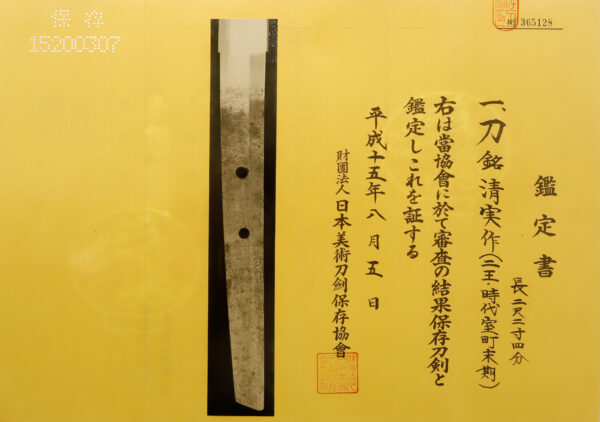 保存
15200307
№ 365128
鑑定書
一、刀 銘 清実作(二王・時代室町末期)
長 二尺二寸四分
右は當協會に於て審査の結果保存刀剣と
鑑定しこれを証する
平成十五年八月五日
財團法人 日本美術刀劍保存協會